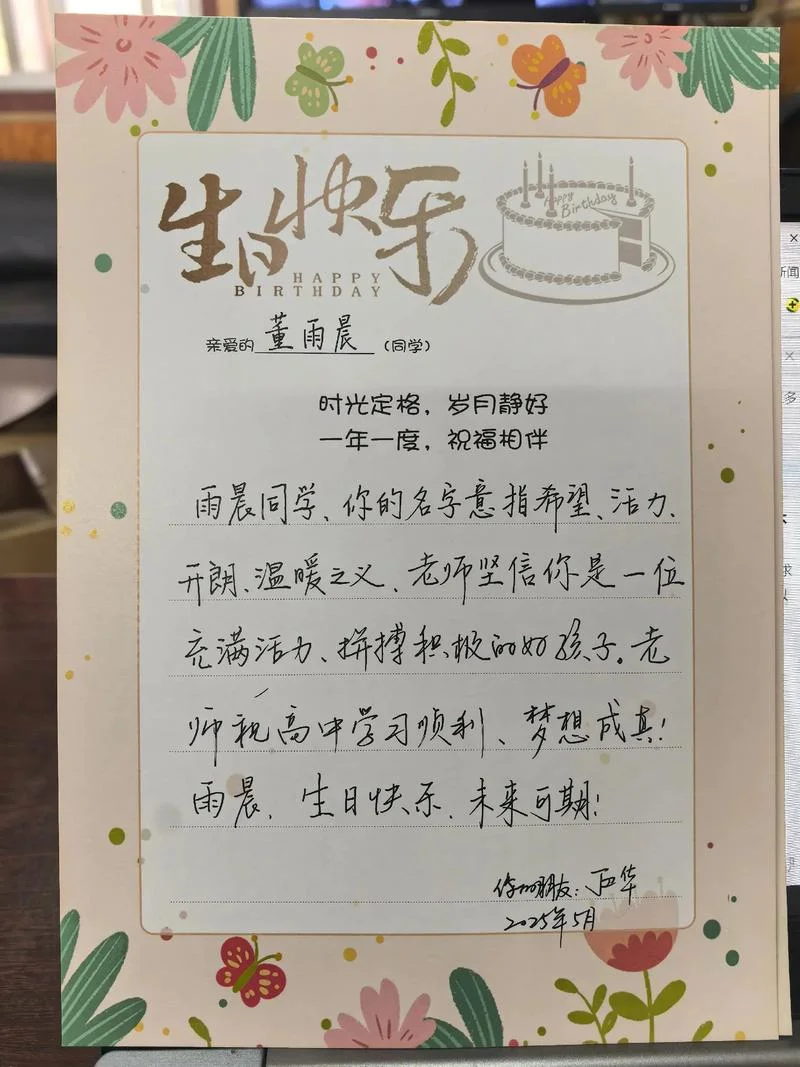 生日快乐
HAPPY
BIRTHDAY
Happy
Birthday
亲爱的董雨晨(同学)
时光定格，岁月静好
一年一度，祝福相伴
雨晨同学、你的名字意指希望、活力、
开朗、温暖之义、老师坚信你是一位
充满活力、拼搏积极的好孩子。老
师祝高中学习顺利、梦想成真！
雨晨，生日快乐，未来可期！
你的朋友：华
2025年5月
新闻
多